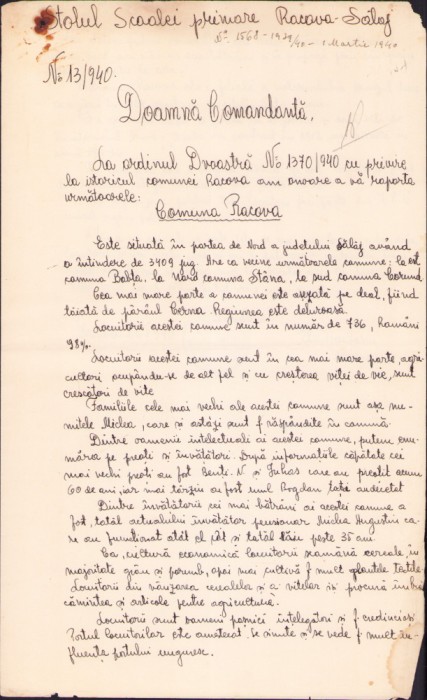 Stolul Școalei primare Racova-Sălaj
No 1568-1939/40 - 1 Martie 1940
No 13/940.
Doamnă Comandantă,
La ordinul Dvoastră No 1370/940 cu privire
la istoricul comunei Racova am onoare a vă raporta
următoarele:
Comuna Racova
Este situată în partea de Nord a județului Sălaj având
o întindere de 3409 jug. Are ca vecine următoarele comune: la est
comuna Babța, la Nord comuna Stâna, la sud comuna Corund.
Cea mai mare parte a comunei este așezată pe deal, fiind
tăiată de părâul Cerna Regiunea este deluroasă.
Locuitorii acestei comune sunt în număr de 736, Români
98%.
Locuitorii acestei comune sunt în cea mai mare parte, agri-
cultori ocupându-se de alt fel și cu creșterea viței de vie, sunt
crescători de vite
Familiile cele mai vechi ale acestei comune sunt așa nu-
mitele Miclea, care și astăzi sunt f. răspândite în comună.
Dintre oamenii intelectuali ai acestei comune, putem enu-
măra pe preoți și învățători. După informațiile căpătate cei
mai vechi preoți au fost N și Iuhas care au preotit acum
60 de ani, iar mai târziu a fost unul Bogdan
Dintre învățătorii cei mai bătrâni ai acestei comune a
fost, tatăl actualului învățător pensionar Miclea Augustin ca-
re au funcționat atât el cât și tatăl său peste 35 ani.
Ca, cultură economică locuitorii samănă cereale, în
majoritate grâu și porumb, apoi mai cultivă f. mult plantele textile.
Locuitorii din vânzarea cerealelor și a vitelor își procură îmbră-
cămintea și articole pentru agricultură.
Locuitorii sunt oameni pașnici înțelegători și f. credincioși
Portul locuitorilor e amestecat. Se simte și se vede f. mult in-
fluența portului unguresc.